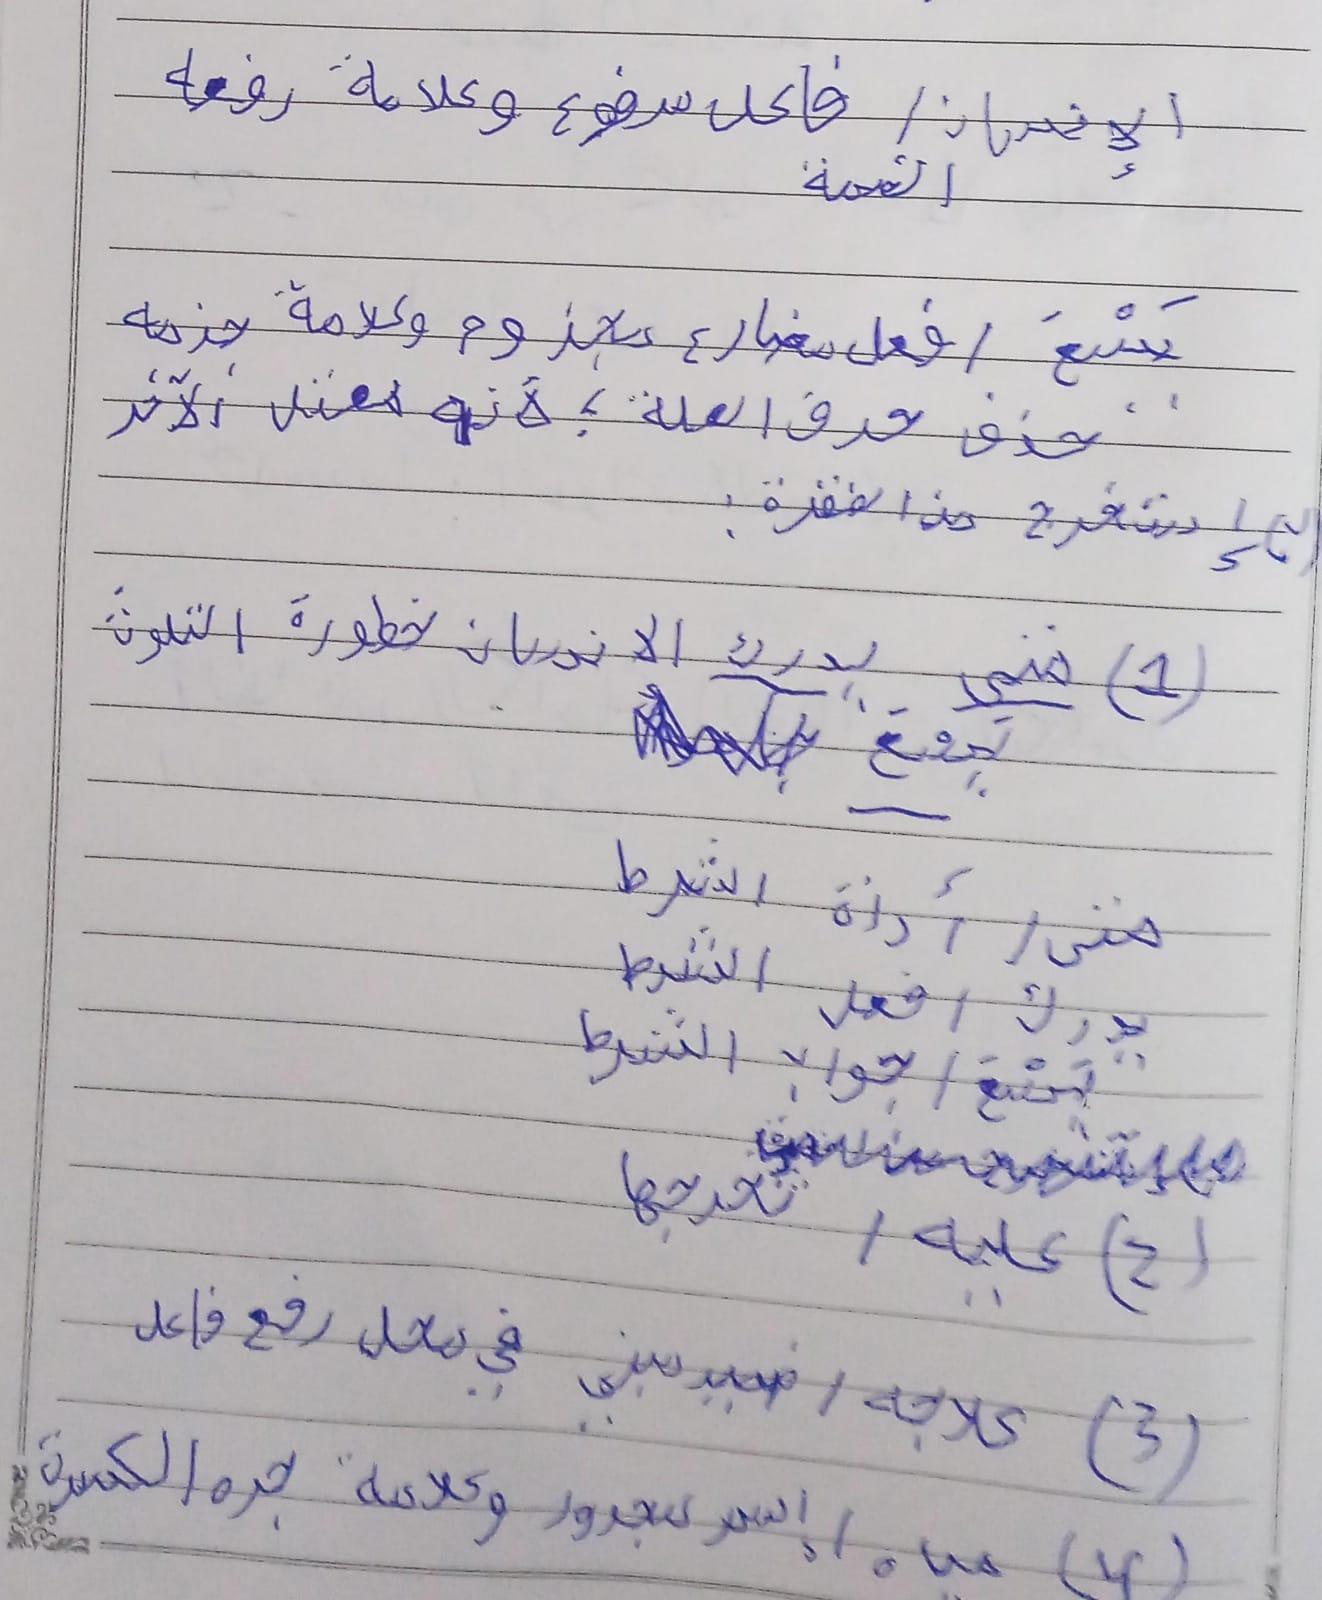 الإنسان / فاعل مرفوع وعلامة رفعه
الضمة
يَسْعَ / فعل مضارع مجزوم وعلامة جزمه
حذف حرف العلة ؛ لأنه معتل الآخر
(2) إستخرج من الفقرة :
(1) متى يدرك الانسان خطورة التلوث
يَسْعَ
متى / أداة الشرط
يدرك / فعل الشرط
يَسْعَ / جواب الشرط
(2) عليه /
(3) علاجه / ضمير مبني في محل رفع فاعل
(4) مياه / إسم مجرور وعلامة جره الكسرة